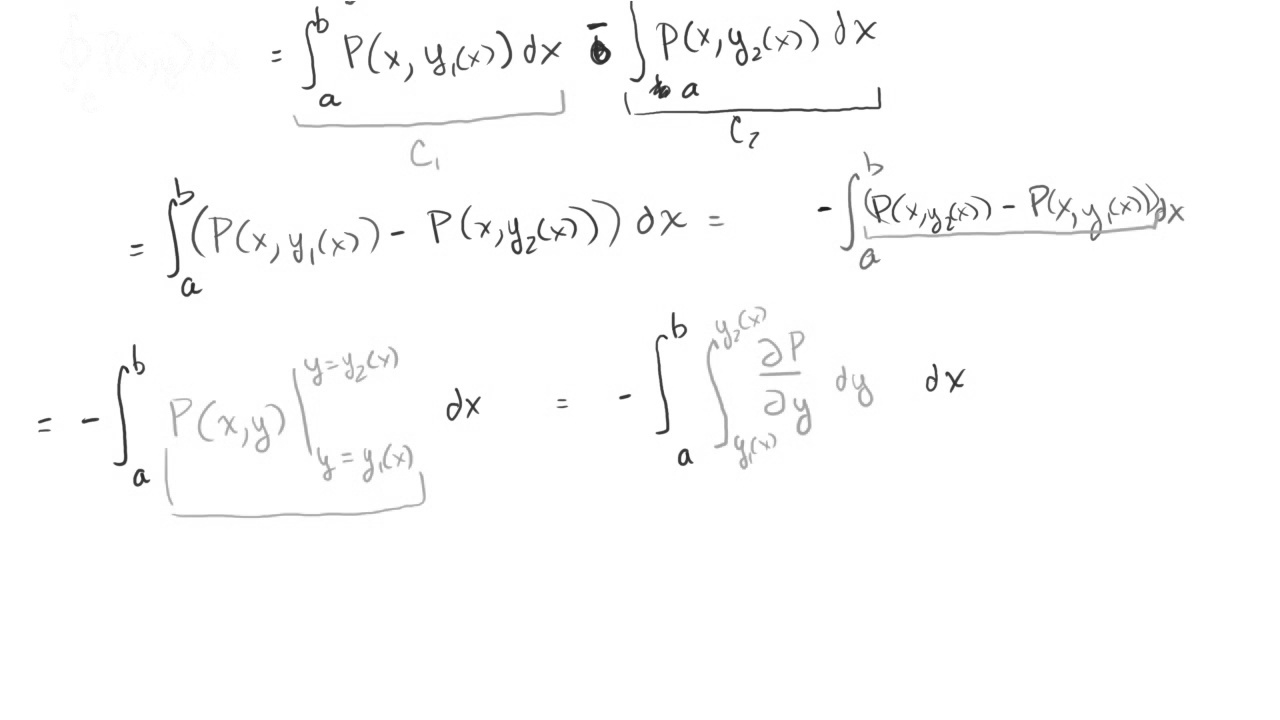 = ∫_a^b P(x, y₁(x)) dx - ∫_a P(x, y₂(x)) dx
C₁ C₂
= ∫_a^b (P(x, y₁(x)) - P(x, y₂(x))) dx = - ∫_a^b (P(x, y₂(x)) - P(x, y₁(x))) dx
= - ∫_a^b P(x,y) |_{y = y₁(x)}^{y = y₂(x)} dx = - ∫_a^b ∫_{y₁(x)}^{y₂(x)} ∂P/∂y dy dx